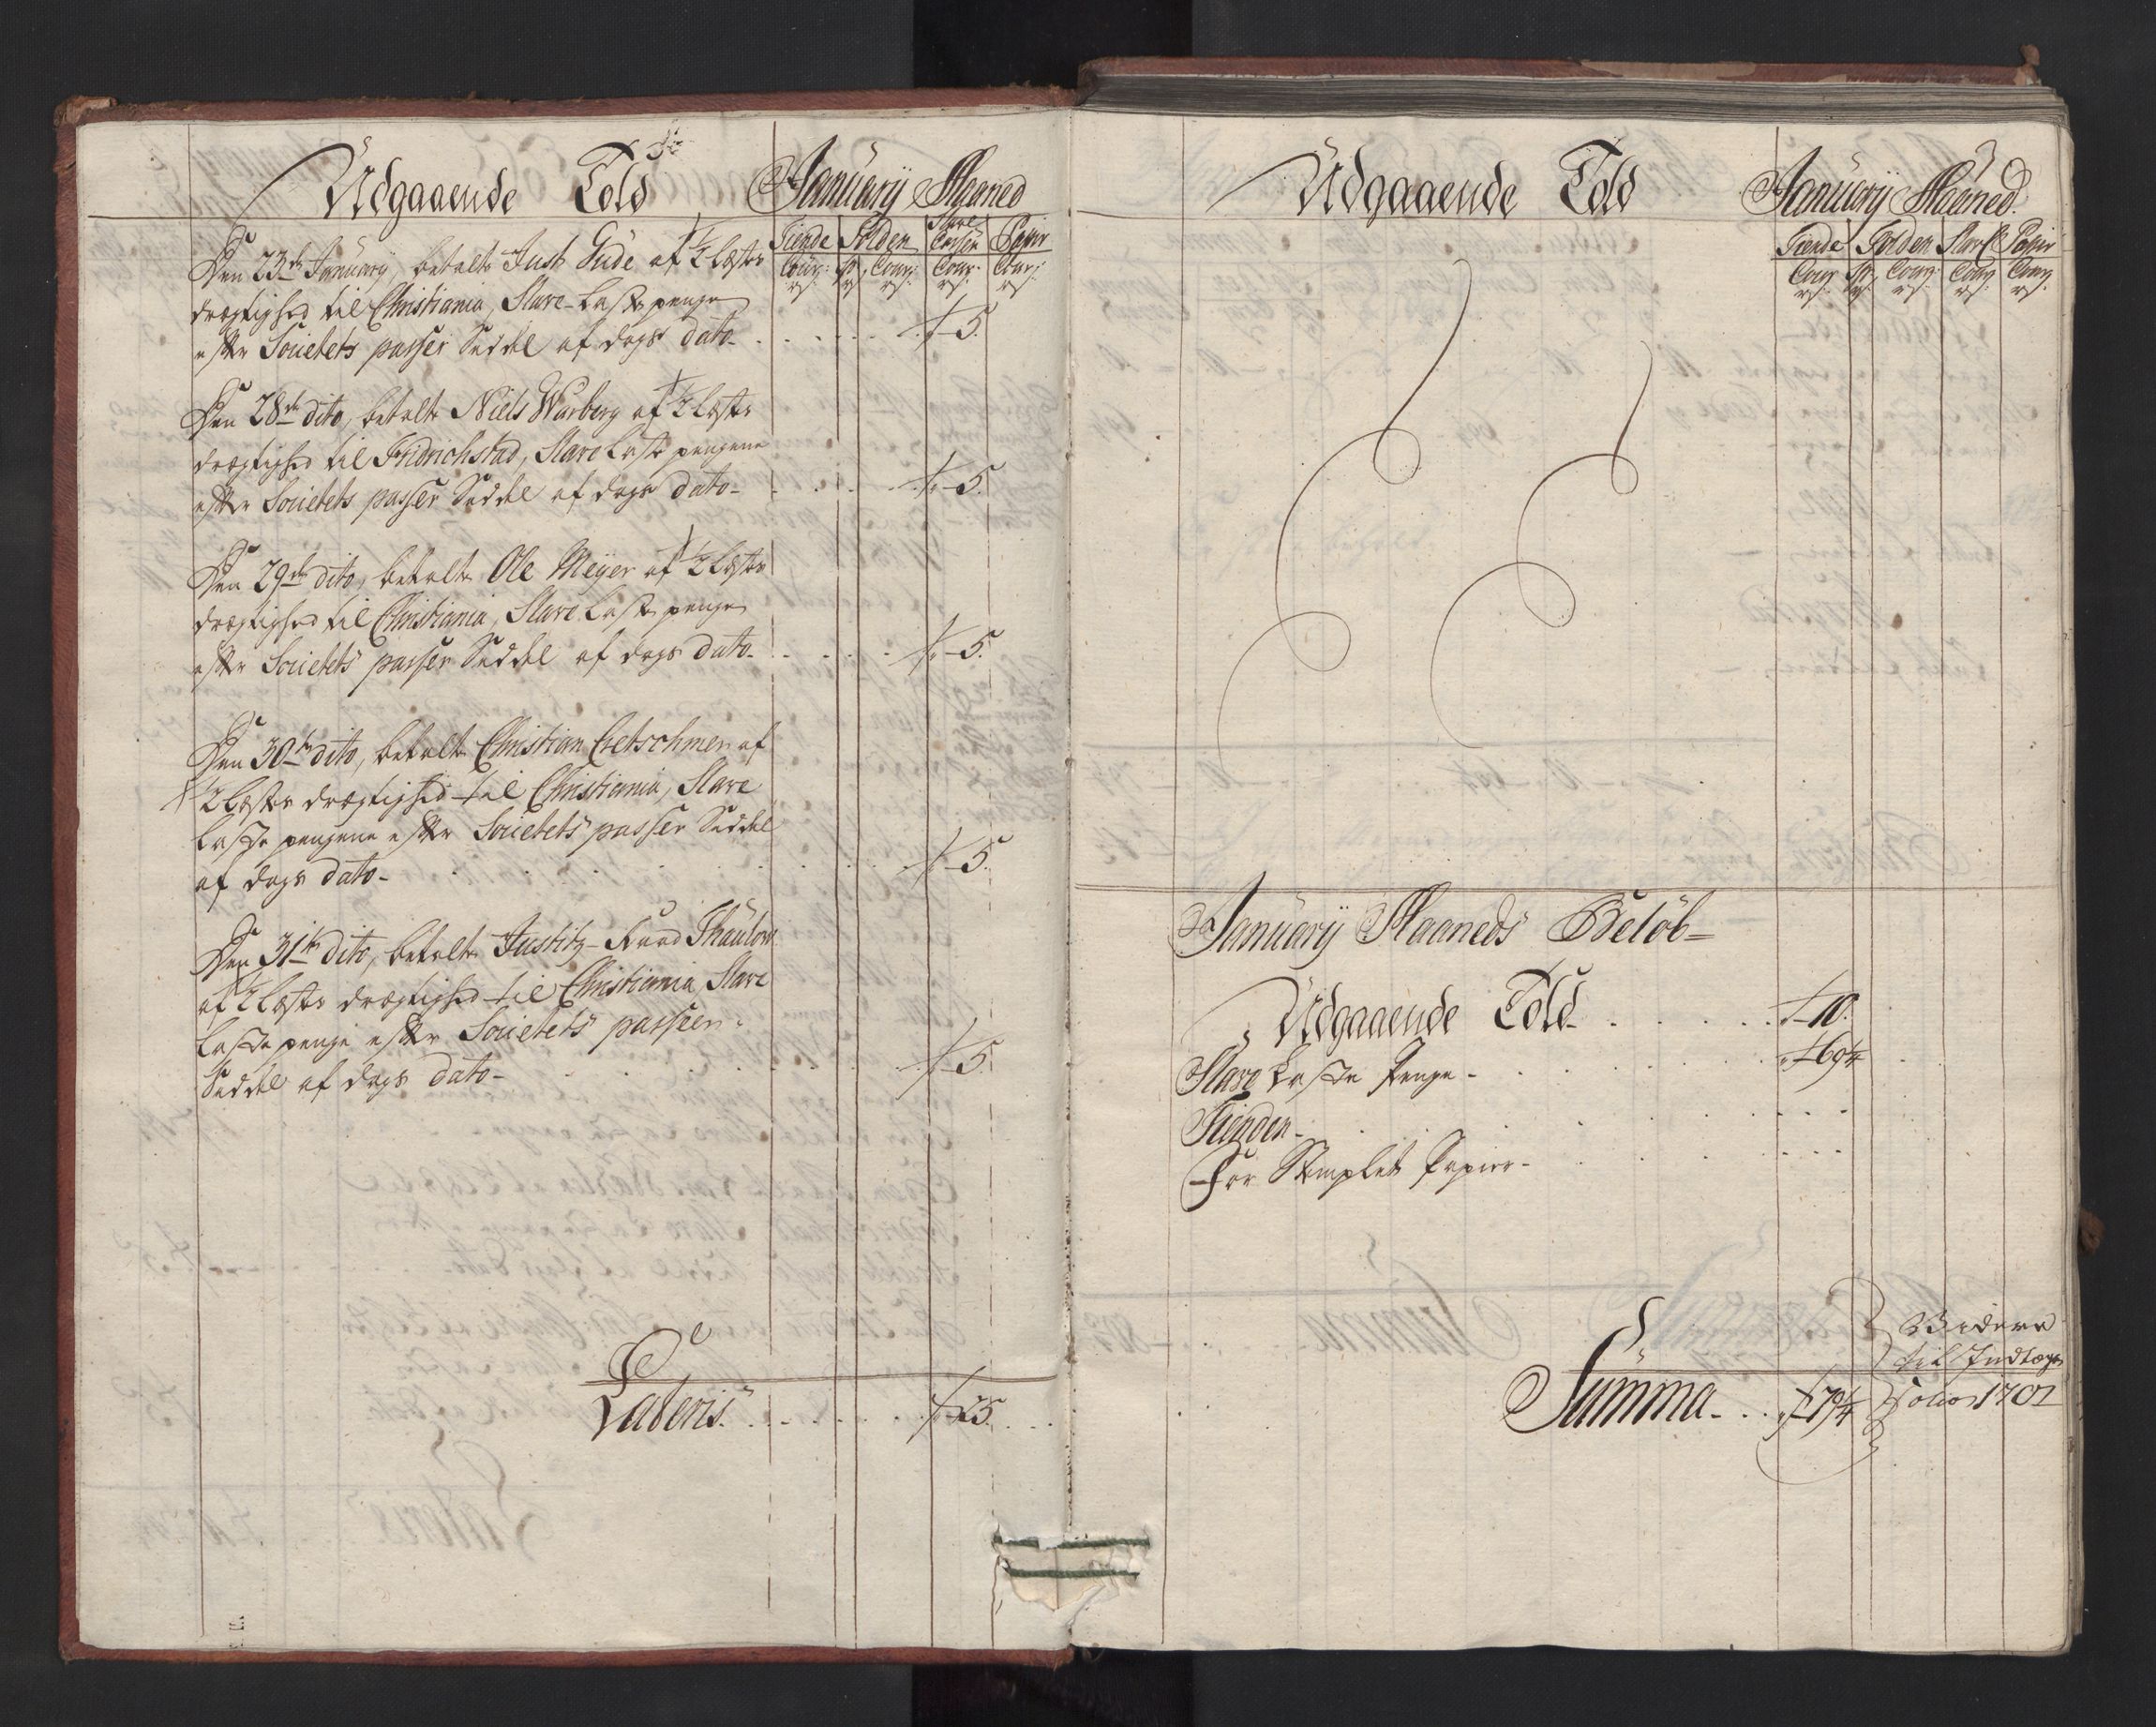 Udgaaende Told
Januarij Maaned
Tiende Tolden Slave Cassen Papir
Cour: Sp. Cour: Cour: Cour:
rs. rs. rs. rs. rs.
Den 23de Januarij, betalte Just Gude af ½ Læster
drægtighed til Christiania, Slave-Laste penge
efter Societets passer Seddel af dags dato - 5.
Den 28de dito, betalte Niels Warberg af ½ Læster
drægtighed til Fridrichstad, Slave Laste pengene
efter Societets passer Seddel af dags dato - 5.
Den 29de dito, betalte Ole Meÿer af ½ Læster
drægtighed til Christiania, Slave Laste penge
efter Societets passer Seddel af dags dato - 5.
Den 30te dito, betalte Christian Cretschmer af
½ Læster drægtighed til Christiania, Slave
Laste pengene efter Societets passer Seddel
af dags dato - 5.
Den 31te dito, betalte Justitz-Raad Thaulow
af ½ Læster drægtighed til Christiania Slave
Laste penge efter Societets passeer-
Seddel af dags dato - 5.
Lateris - 25.
3
Udgaaende Told
Januarij Maaned.
Tiende Tolden Slav C Papir
Cour Sp. Cour: Cour: Cour:
rs. rs. rs. rs. rs.
Januarij Maaneds Beløb
Udgaaende Told - 10.
Slave Laste Penge - 69¼
Tienden -
For Stemplet Papiir -
Summa - 79¼
Videre
til Indtægt
folio 1701